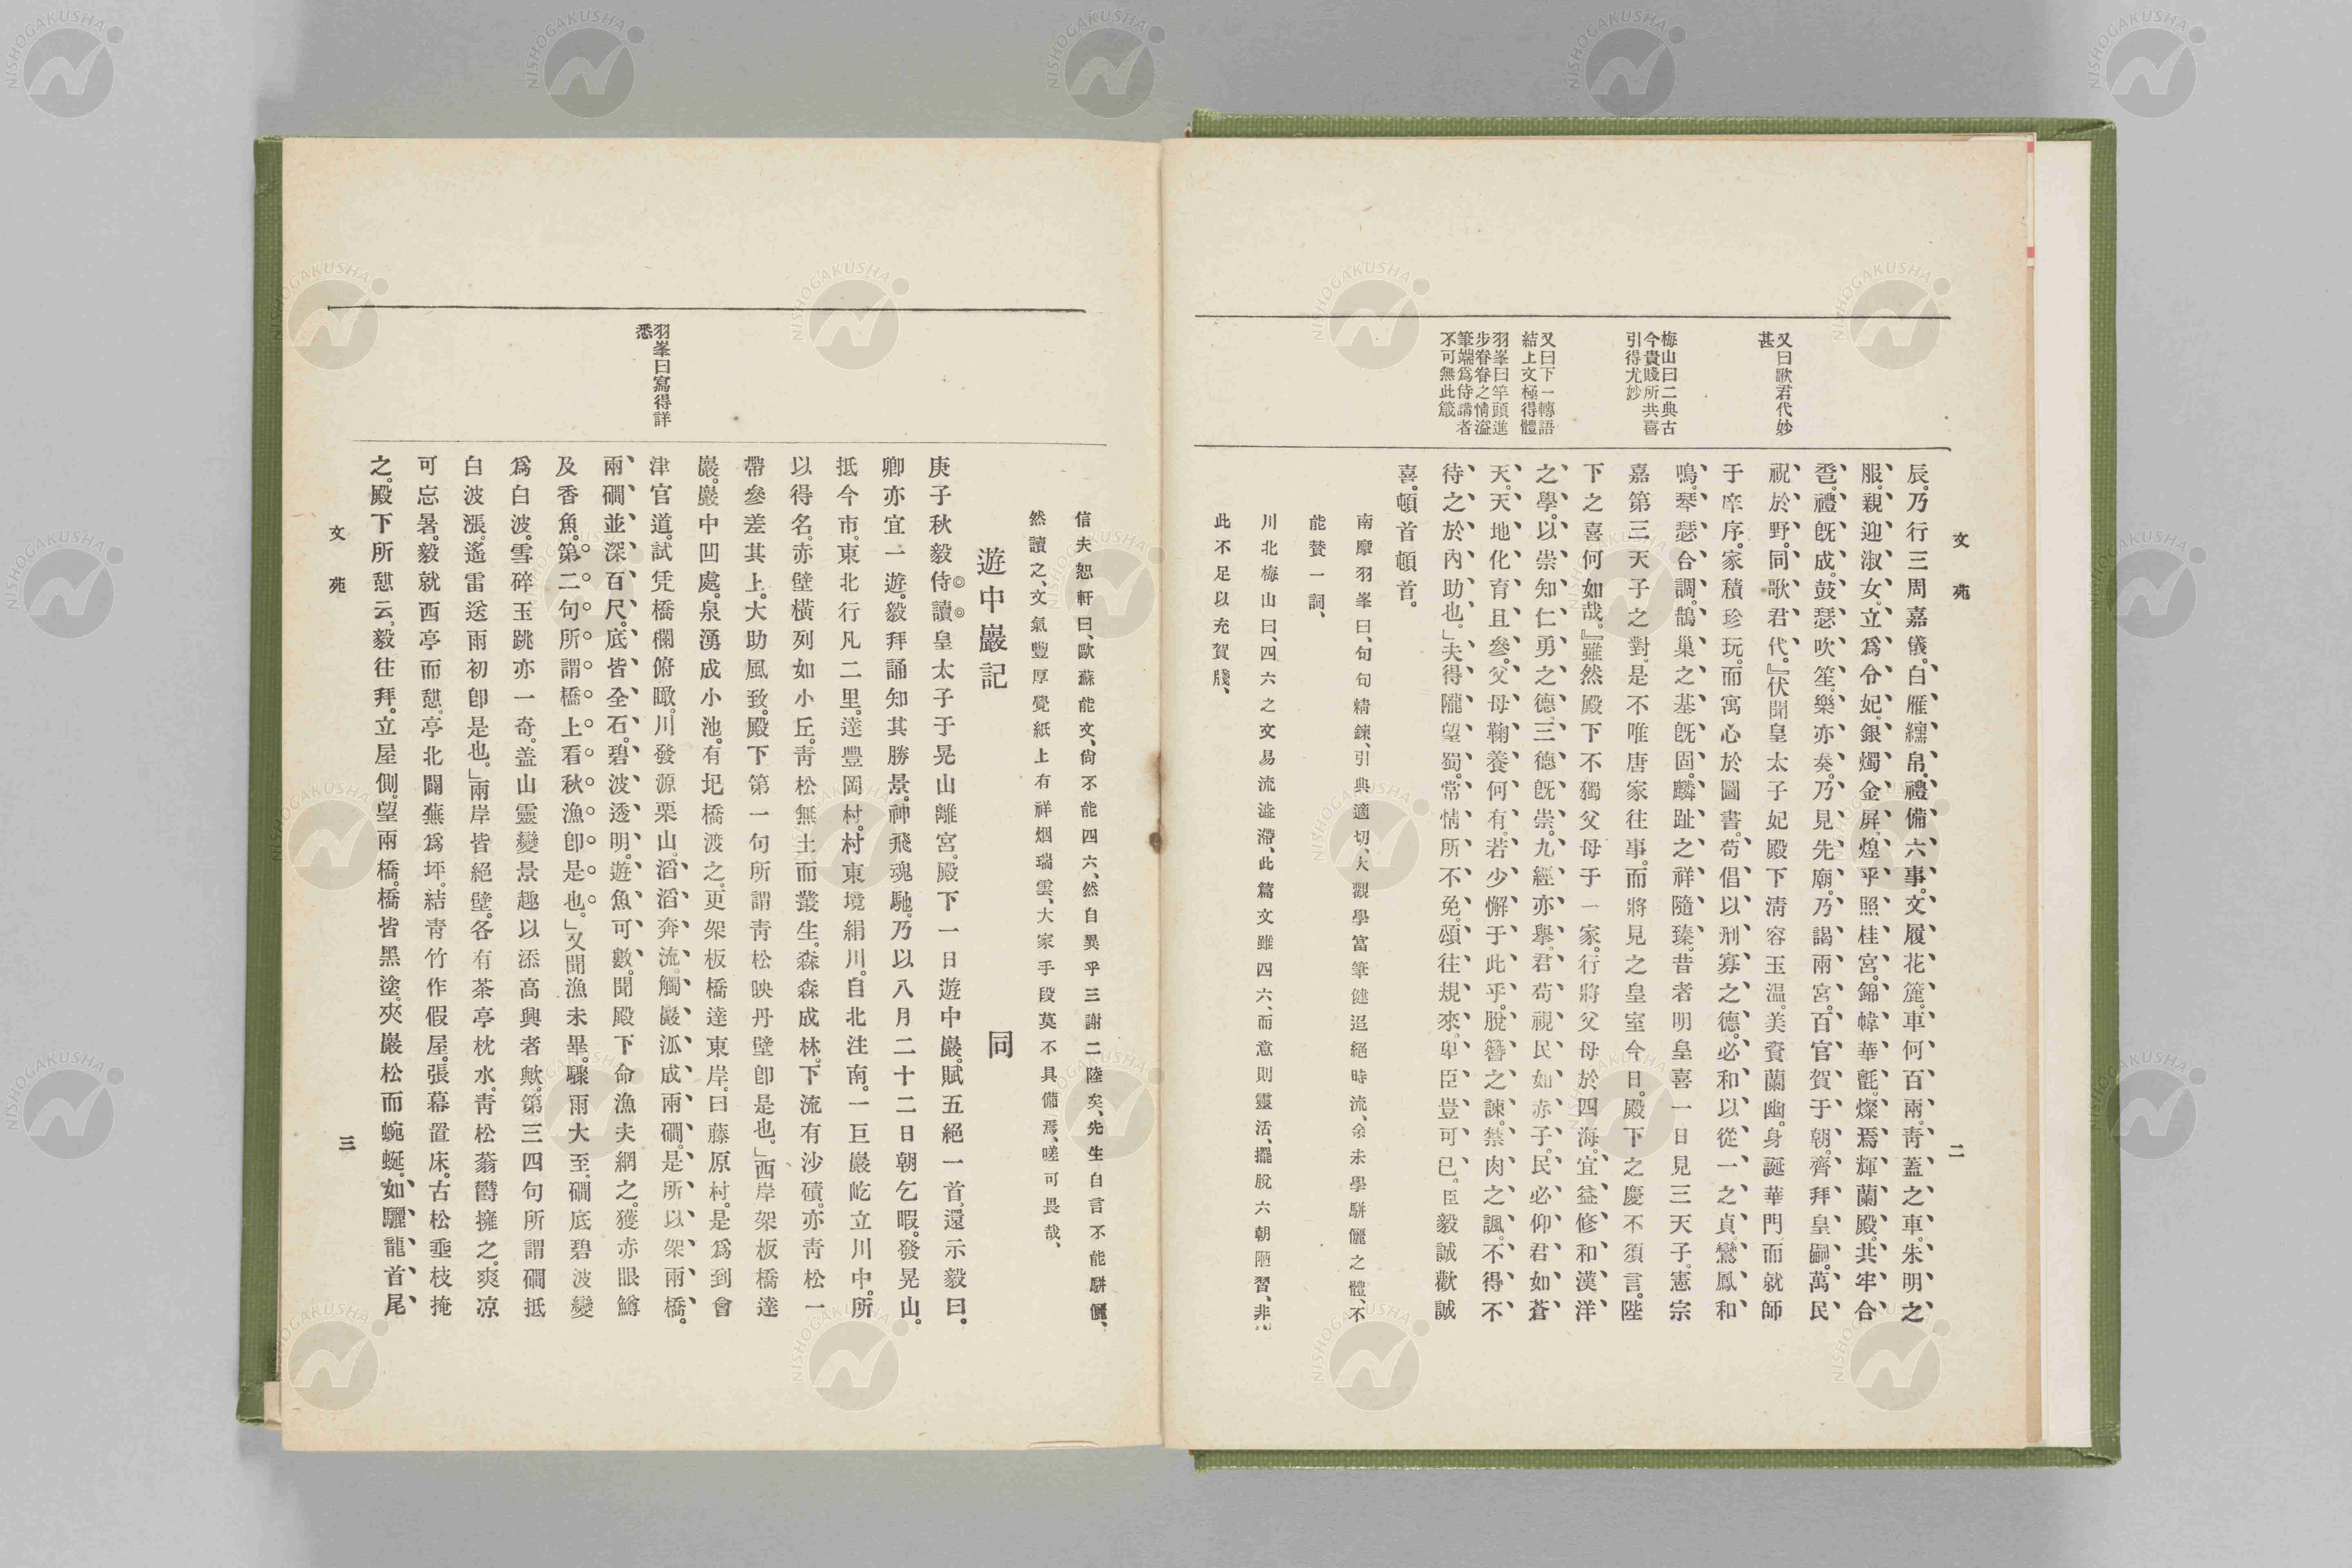 文苑
二
又曰歌君代妙
甚
梅山曰二典古
今貴賤所共喜
引得尤妙
又曰下一轉語
結上文極得體
羽峯曰竿頭進
步眷眷之情溢
筆端爲侍講者
不可無此箴
辰。乃行三周嘉儀。白雁纁帛。禮備六事。文履花簏。車何百兩。靑蓋之車。朱明之
服。親迎淑女。立爲分妃。銀燭金屏。煌乎照桂宮。錦幃華氈。燦焉輝蘭殿。共牢合
卺。禮旣成。鼓瑟吹笙。樂亦奏。乃見先廟。乃謁兩宮。百官賀于朝。齊拜皇嗣。萬民
祝於野。同歌君代。』伏聞皇太子妃殿下淸容玉温。美資蘭幽。身誕華門。而就師
于庠序。家積珍玩。而寓心於圖書。苟倡以刑寡之德。必和以從一之貞。鸞鳳和
鳴。琴瑟合調。鵲巢之基旣固。麟趾之祥隨臻。昔者明皇喜一日見三天子。憲宗
嘉第三天子之對。是不唯唐家往事。而將見之皇室今日。殿下之慶不須言。陛
下之喜何如哉。』雖然殿下不獨父母于一家。行將父母於四海。宜益修和漢洋
之學。以崇知仁勇之德。三德旣崇。九經亦擧。君苟視民如赤子。民必仰君如蒼
天。天地化育且參。父母鞠養何有。若少懈于此乎。脫簪之諫。禁肉之諷。不得不
待之於內助也。」夫得隴望蜀。常情所不免。頌往規來。卑臣豈可已。臣毅誠歡誠
喜。頓首頓首。
南摩羽峯曰、句句精鍊、引典適切、大觀學富筆健迢絕時流、余未學駢儷之體、不
能賛一詞、
川北梅山曰、四六之文易流澁滯、此篇文雖四六、而意則靈活、擺脫六朝陋習、非
此不足以充賀牋、
信夫恕軒曰、歐蘇能文、尙不能四六、然自異乎三謝二陸矣、先生自言不能駢儷、
然讀之、文氣豐厚覺紙上有祥烟瑞雲、大家手段莫不具備焉、嗟可畏哉、
遊中巖記
同
羽峯曰寫得詳
悉
庚子秋毅侍讀皇太子于晃山離宮。殿下一日遊中巖。賦五絕一首。還示毅曰。
卿亦宜一遊。毅拜誦知其勝景。神飛魂馳。乃以八月二十二日朝乞暇。發晃山。
抵今市。東北行凡二里。達豐岡村。村東境絹川。自北注南。一巨巖屹立川中。所
以得名。赤壁橫列如小丘。靑松無土而叢生。森森成林。下流有沙磧。亦靑松一
帶參差其上。大助風致。殿下第一句所謂靑松映丹壁卽是也。」西岸架板橋達
巖。巖中凹處。泉湧成小池。有圯橋渡之。更架板橋達東岸。曰藤原村。是爲到會
津官道。試凭橋欄俯瞰。川發源栗山。滔滔奔流。觸巖派成兩磵。是所以架兩橋。
兩磵並深百尺。底皆全石。碧波透明。遊魚可數。聞殿下命漁夫網之。獲赤眼鱒
及香魚。第二句所謂橋上看秋漁卽是也。」又聞漁未畢。驟雨大至。磵底碧波變
爲白波。雪碎玉跳亦一奇。盖山靈變景趣以添高興者歟。第三四句所謂磵抵
白波漲。遙雷送雨初卽是也。」兩岸皆絕壁。各有茶亭枕水。靑松蓊鬱擁之。爽凉
可忘暑。毅就西亭而憩。亭北闢蕪爲坪。結靑竹作假屋。張幕置床。古松垂枝掩
之。殿下所憩云。毅往拜。立屋側。望兩橋。橋皆黑塗。夾巖松而蜿蜒。如驪龍首尾
文苑
三